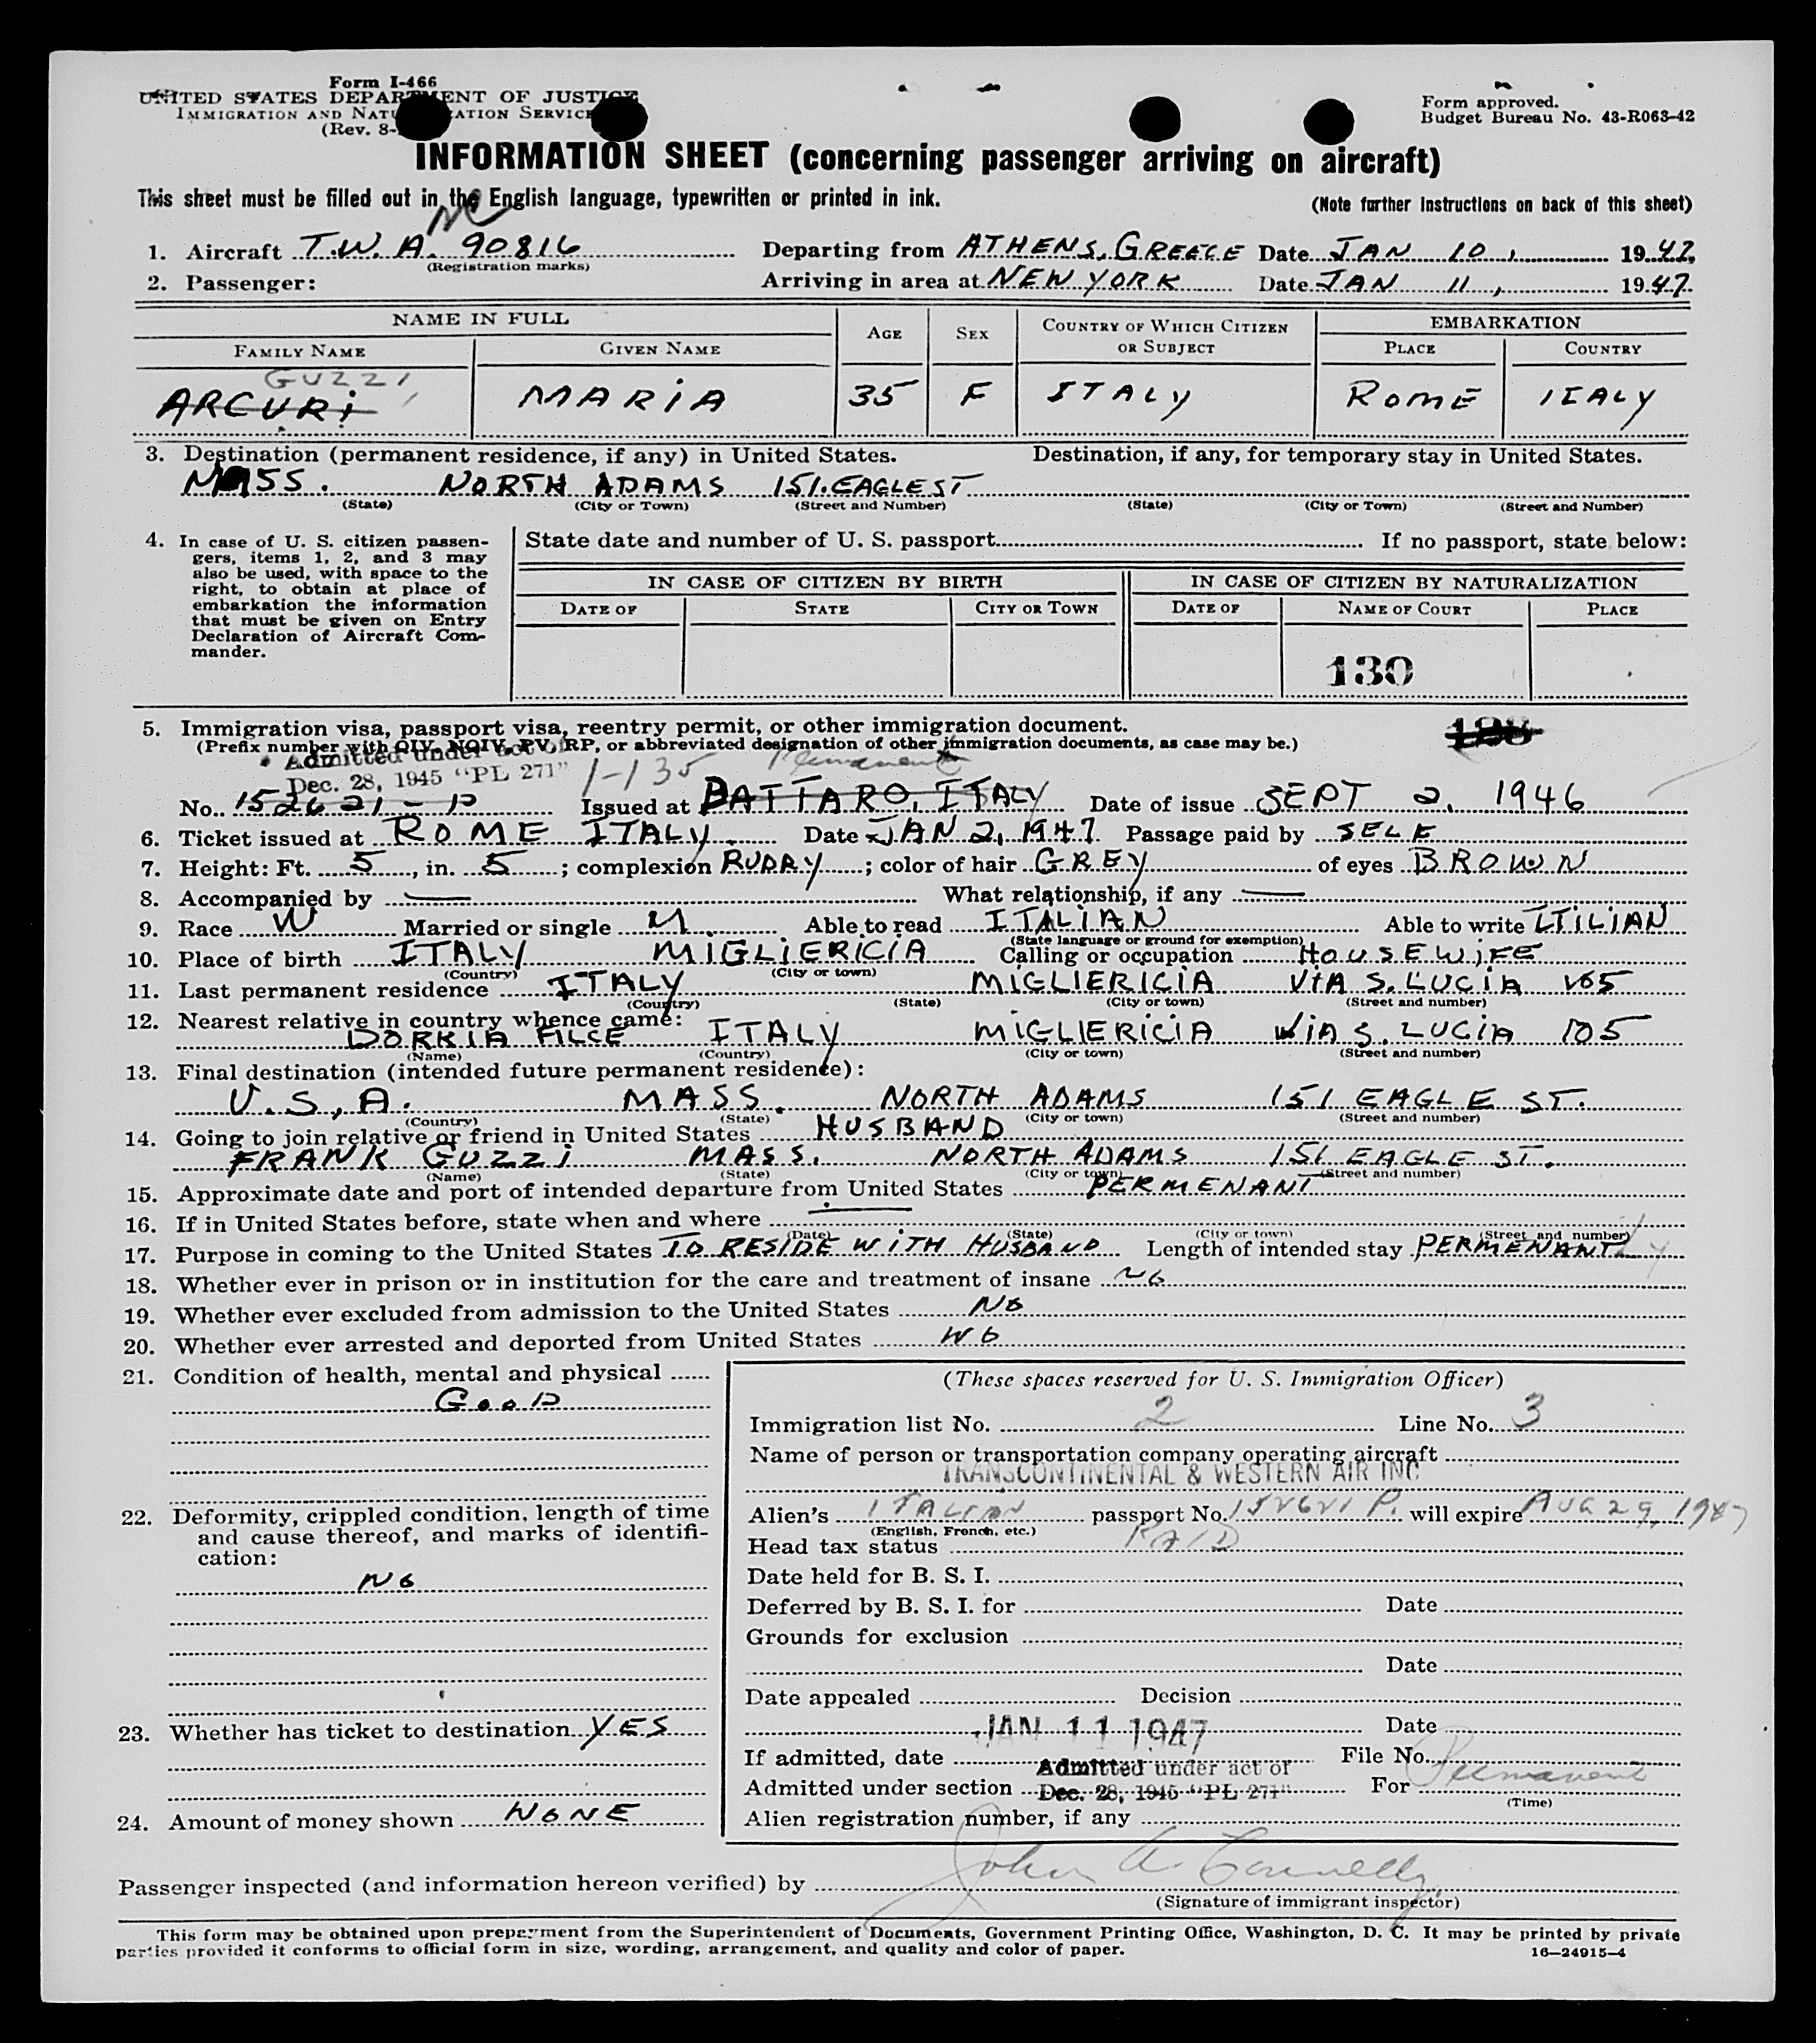 Form I-466
UNITED STATES DEPARTMENT OF JUSTICE
IMMIGRATION AND NATURALIZATION SERVICE
(Rev. 8-
Form approved.
Budget Bureau No. 43-R063-42
INFORMATION SHEET (concerning passenger arriving on aircraft)
This sheet must be filled out in the English language, typewritten or printed in ink.
(Note further instructions on back of this sheet)
1. Aircraft T.W.A. NC 90816 Departing from ATHENS, GREECE Date JAN 10, 1947.
(Registration marks)
2. Passenger: Arriving in area at NEW YORK Date JAN 11, 1947.
NAME IN FULL AGE SEX COUNTRY OF WHICH CITIZEN OR SUBJECT EMBARKATION
FAMILY NAME GIVEN NAME PLACE COUNTRY
GUZZI,
ARCURI MARIA 35 F ITALY ROME ITALY
3. Destination (permanent residence, if any) in United States. Destination, if any, for temporary stay in United States.
MASS. NORTH ADAMS 151. EAGLE ST
(State) (City or Town) (Street and Number) (State) (City or Town) (Street and Number)
4. In case of U. S. citizen passen-
gers, items 1, 2, and 3 may
also be used, with space to the
right, to obtain at place of
embarkation the information
that must be given on Entry
Declaration of Aircraft Com-
mander.
State date and number of U. S. passport If no passport, state below:
IN CASE OF CITIZEN BY BIRTH IN CASE OF CITIZEN BY NATURALIZATION
DATE OF STATE CITY OR TOWN DATE OF NAME OF COURT PLACE
130
5. Immigration visa, passport visa, reentry permit, or other immigration document.
198
(Prefix number with QIV, NQIV, PV, RP, or abbreviated designation of other immigration documents, as case may be.)
Admitted under act of
Dec. 28, 1945 "PL 271" 1-135 Permanent
No. 152621-P Issued at BATTARO, ITALY Date of issue SEPT 2, 1946
6. Ticket issued at ROME ITALY Date JAN 2, 1947 Passage paid by SELF
7. Height: Ft. 5, in. 5; complexion RUDDY; color of hair GREY of eyes BROWN
8. Accompanied by — What relationship, if any —
9. Race W Married or single M. Able to read ITALIAN Able to write ITILIAN
(State language or ground for exemption)
10. Place of birth ITALY MIGLIERICIA Calling or occupation HOUSEWIFE
(Country) (City or town)
11. Last permanent residence ITALY MIGLIERICIA VIA S. LUCIA 105
(Country) (State) (City or town) (Street and number)
12. Nearest relative in country whence came:
DORKIA ALCE ITALY MIGLIERICIA VIA S. LUCIA 105
(Name) (Country) (City or town) (Street and number)
13. Final destination (intended future permanent residence):
U.S,A. MASS. NORTH ADAMS 151 EAGLE ST.
(Country) (State) (City or town) (Street and number)
14. Going to join relative or friend in United States HUSBAND
FRANK GUZZI MASS. NORTH ADAMS 151 EAGLE ST.
(Name) (State) (City or town) (Street and number)
15. Approximate date and port of intended departure from United States PERMENANT
16. If in United States before, state when and where —
(Date) (State) (City or town) (Street and number)
17. Purpose in coming to the United States TO RESIDE WITH HUSBAND Length of intended stay PERMENANTLY
18. Whether ever in prison or in institution for the care and treatment of insane NO
19. Whether ever excluded from admission to the United States NO
20. Whether ever arrested and deported from United States NO
21. Condition of health, mental and physical
GOOD
22. Deformity, crippled condition, length of time
and cause thereof, and marks of identifi-
cation:
NO
23. Whether has ticket to destination YES
24. Amount of money shown NONE
(These spaces reserved for U. S. Immigration Officer)
Immigration list No. 2 Line No. 3
Name of person or transportation company operating aircraft
TRANSCONTINENTAL & WESTERN AIR INC
Alien's ITALIAN passport No. 152621 P. will expire AUG 29, 1947
(English, French, etc.)
Head tax status PAID
Date held for B. S. I.
Deferred by B. S. I. for Date
Grounds for exclusion
Date
Date appealed Decision
JAN 11 1947 Date
If admitted, date File No.
Admitted under act of
Admitted under section Dec. 28, 1945 "PL 271" For Permanent
(Time)
Alien registration number, if any
Passenger inspected (and information hereon verified) by John A Connelly
(Signature of immigrant inspector)
This form may be obtained upon prepayment from the Superintendent of Documents, Government Printing Office, Washington, D. C. It may be printed by private
parties provided it conforms to official form in size, wording, arrangement, and quality and color of paper.
16—24915-4